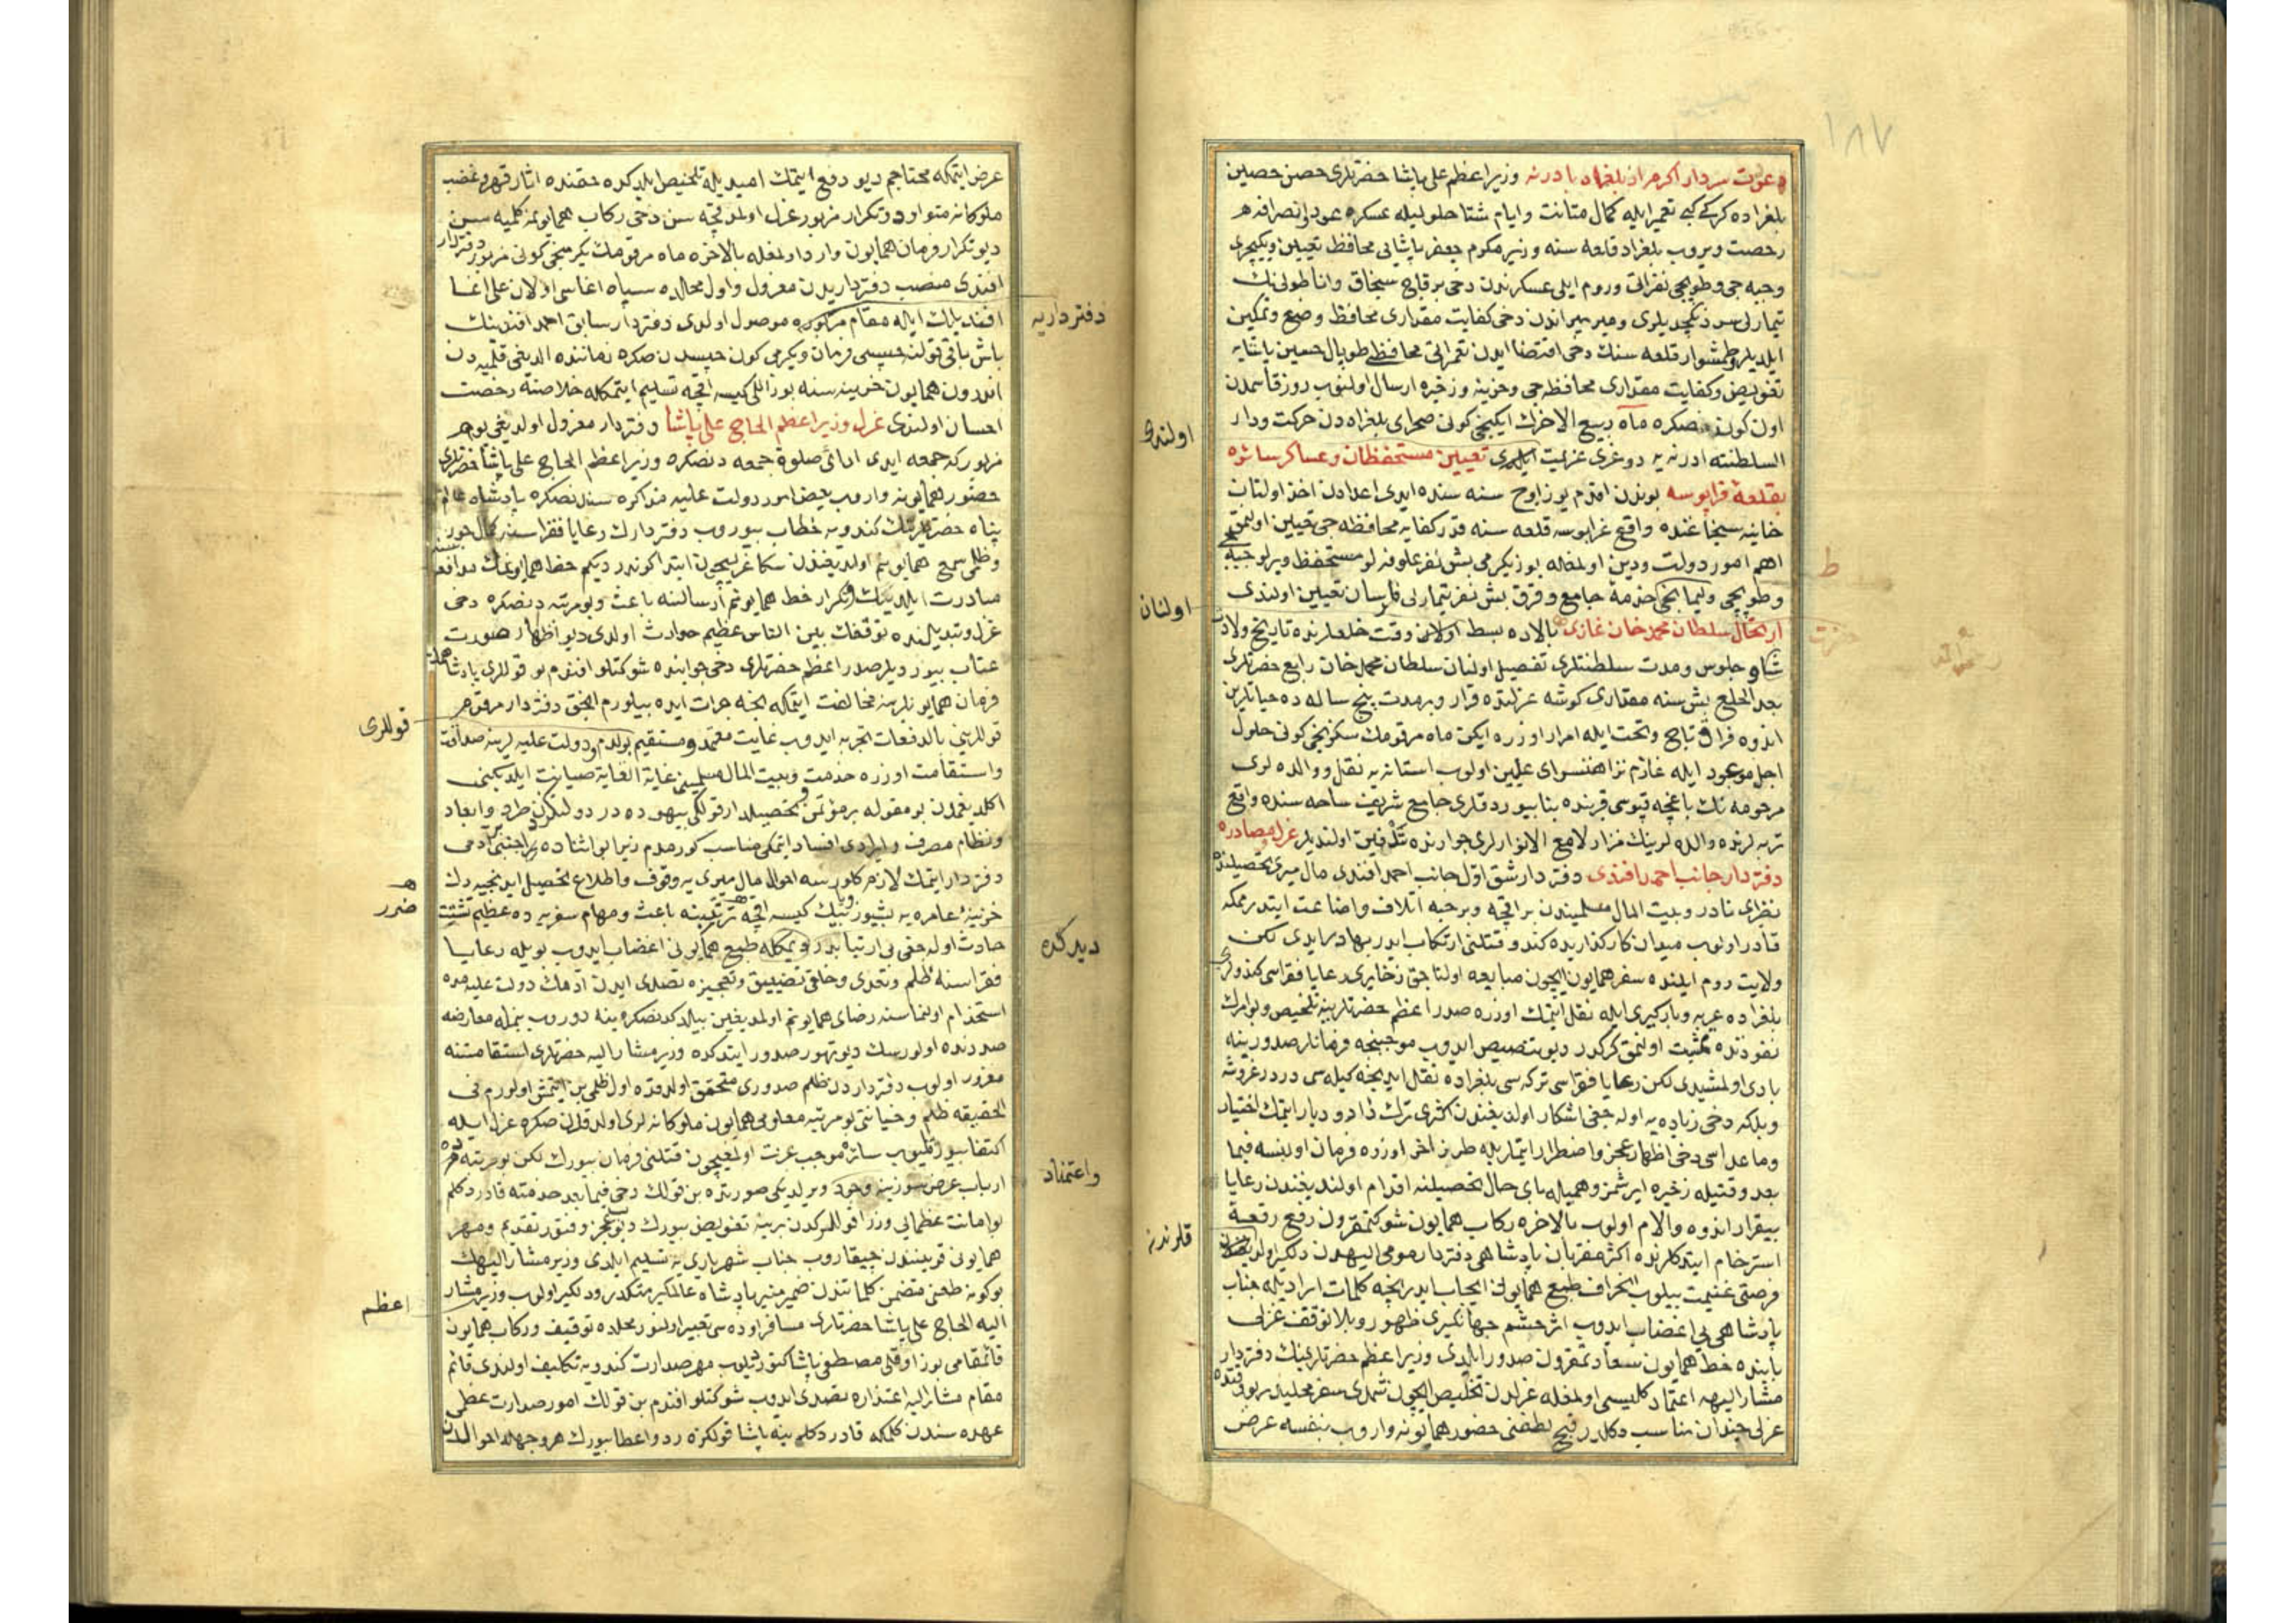 ١٨٧
دعوت سردار اکرم از بلغراد بادرنه وزیر اعظم علی پاشا حضرتلری حصن حصین
بلغراده کرکی کبی تعمیر ایله کمال متانت و ایام شتا حلولیله عسکره عود و انصرافه
رخصت ویروب بلغراد قلعه سنه وزیر مکرم جعفر پاشایی محافظ تعیین ویکیچری
وجبه جی وطوپچی نفراتی وروم ایلی عسکرندن دخی بر قاچ سنجاق واناطولینك
ومیر میراندن دخی کفایت مقداری محافظ وضع وتمکین
ایلدیلر وطمشوار قلعه سنك دخی اقتضا ایدن محافظی طوپال حسین پاشایه
تفویض وکفایت مقداری محافظه جی وخزینه وذخیره ارسال اولنوب روز قاسمدن
اون کون صکره ماه ربیع الاخرك ایکنجی کونی صحرای بلغراددن حرکت ودار
السلطنته ادرنه یه دوغری عزیمت ایلدی تعیین مستحفظان وعساکر سائره
بقلعۀ قرابوسه بوندن اقدم یوز اوج سنه سنده ایدی اعدادن اخذ اولنان
خانیه سنجاغنده واقع غرابوسه قلعه سنه قدر کفایه محافظه جی تعیین اولنمق
اهم امور دولت ودین اولمغله یوز یکرمی بش نفر علوفه لو مستحفظ ویرلو جبه جی
وطوپچی خدمۀ جامع وقرق بش نفر تیمارلی فارسان تعیین اولندی
ارتحال سلطان محمد خان غازی بالاده بسط اولنان وقت خلعلرنده تاریخ ولادت
وجلوس ومدت سلطنتلری تفصیل اولنان سلطان محمد خان رابع حضرتلری
بعد الخلع بش سنه مقداری کوشه عزلتده قرار وبر مدت پنج ساله ده حیاتلرین
اندوه فراق تاج وتخت ایله امرار اوزره ایکن ماه مرقومك سکزنجی کونی حلول
اجل موعود ایله عازم علیین اولوب استانه یه نقل ووالده لری
مرحومه نك باغچه قپوسی قربنده بنا بیوردقلری جامع شریف ساحه سنده واقع
تربه لرنده والده لرینك مزار لامع الانوارلری جوارنده تدفین اولندیلر عزل ومصادره
دفتردار جانب احمد افندی دفتردار شق اول جانب احمد افندی مال میری تحصیلنده
نظیری نادر وبیت المال مسلمیندن بر اقچه وبر حبه اتلاف واضاعت ایتدرمکه
قادر اولوب میدان کارکذاریده کندو قتلنی ارتکاب ایدر بهادر ایدی لکن
ولایت روم ایلنده سفر همایون ایچون مبایعه اولناجق ذخایری رعایا فقراسی کندولری
بلغراده عربه وبارکیری ایله نقل ایتمك اوزره صدر اعظم حضرتلرینه تلخیص وبو امرك
نفوذنده تمشیت اولنمق کرکدر دیو تنصیص ایدوب موجبنجه فرمانلر صدورینه
بادی اولمشیدی لکن رعایا فقراسی ترکه سی بلغراده نقل ایدنجه کیله سی دردر غروشه
وبلکه دخی زیاده یه اوله جغی اشکار اولدیغندن اکثری ترك دار ودیار ایتمك اختیار
وماعداسی دخی اظهار عجز واضطرار ایتماریله طرز اخر اوزره فرمان اولنسه فیما
بعد وقتیله ذخیره ایرشمز وهمیله بای حال تحصیلنه اقدام اولندیغندن رعایا
بیقرار اندوه والام اولوب بالاخره رکاب همایون شوکتمقرون رفع رقعۀ
استرحام ایتدکلرنده اکثر مقربان پادشاهی دفتردار مومی الیهدن دلکیر اولدیغندن
فرصتی غنیمت بیلوب انحراف طبع همایونی ایجاب ایدر نیجه کلمات ایرادیله جناب
پادشاهی یی اغضاب ایدوب اثر خشم جهانکیری ظهور وبلا توقف عزلی
بابنده خط همایون سعادتمقرون صدور ایلدی وزیر اعظم حضرتلرینك دفتردار
مشار الیهه اعتماد کلیسی اولمغله عزلدن تخلیص ایچون شمدی سفر محلیدر بو وقتده
عزلی چندان مناسب دکلدر حضور همایونه واروب بنفسه عرض
اولندی
اولنان
قلرندنه
ط
حضرت
عرض ایتمکه محتاجم دیو دفع ایتمك امیدیله تلخیص ایلدکده حقنده اثار قهر وغضب
ملوکانه متوارد وتکرار مزبور عزل اولمدقچه سن دخی رکاب همایونمه کلمیه سن
دیو تکرار فرمان همایون وارد اولمغله بالاخره ماه مرقومك یکرمنجی کونی مزبور دفتردار
افندی منصب دفترداریدن معزول واول محالده سپاه اغاسی اولان علی اغا
افندیلك ایله مقام مزکوره موصول اولدی دفتردار سابق احمد افندینك
باش باقی قولنه حبسی فرمان ویکرمی کون حبسدن صکره زماننده الدیغی قلمیه دن
اندرون همایون خزینه سنه یوز اللی کیسه اقچه تسلیم ایتمکله خلاصنه رخصت
احسان اولندی عزل وزیر اعظم الحاج علی پاشا دفتردار معزول اولدیغی یوم
مزبور که جمعه ایدی ادای صلوة جمعه دنصکره وزیر اعظم الحاج علی پاشا حضرتلری
حضور همایونه واروب بعض امور دولت علیه مذاکره سندنصکره پادشاه عالم
پناه حضرتلرینك کندویه خطاب بیوروب دفتردارك رعایا فقراسنه کمال جور
وظلمی سمع همایونم اولدیغندن سکا عزلیچون ابتدا کوندردیکم خط همایونمك مدافعه سنه
مبادرت ایلدیكك وتکرار خط همایونم ارسالنه باعث وبو مرتبه دنصکره دخی
عزل وتبدیلنده توقفك بین الناس عظیم حوادث اولدی دیو اظهار صورت
عتاب بیوردیلر صدر اعظم حضرتلری دخی جوابنده شوکتلو افندم بو قوللری پادشاهمك
فرمان همایونلرینه مخالفت ایتمکه نجه جرات ایده بیلورم انجق دفتردار مرقوم
قوللرینی بالدفعات تجربه ایدوب غایت معتمد ومستقیم بولدم ودولت علیه لرینه صداقت
واستقامت اوزره خدمت وبیت المال مسلمینی غایة الغایة صیانت ایلدیکنی
اکلدیغمدن بو مقوله بر مؤتمن وتحصیلدار قولکی بیهوده در دولتکدن طرد وابعاد
ونظام مصرف وایرادی افساد ایتمکی مناسب کورمدم زیرا بو اثناده بر اجنبی آدمی
دفتردار ایتمك لازم کلورسه احوال مال میری یه وقوف واطلاع تحصیل ایدنجیه دك
خزینۀ عامره یه بشیوز وبیك کیسه اقچه ترتیبنه باعث ومهام سفریه ده عظیم تشتت
حادث اوله جغی بی ارتیابدر دیمکله طبع همایونی اغضاب ایدوب بویله رعایا
فقراسنه ظلم وتعدی وخلقی تضییق وتعجیزه تصدی ایدن آدمك دولت علیه مده
استخدام اولنماسنه رضای همایونم اولمدیغین بیلدکدنصکره ینه دوروب بنمله معارضه
صددنده اولورسك دیو تهور صدور ایتدکده وزیر مشار الیه حضرتلری استقامتنه
مغرور اولوب دفترداردن ظلم صدوری متحقق اولدقده اول ظلمی بن ایتمش اولورم فی
الحقیقه ظلم وخیانتی بو مرتبه معلوم همایون ملوکانه لری اولدقدن صکره عزل ایله
اکتفا بیورلمیوب سائره موجب عبرت اولمغیچون قتلنی فرمان بیورك لکن بو مرتبه ده
ارباب عرض سوزینه وجود ویرلدیکی صورتده بن قولك دخی فیما بعد خدمته قادر دکلم
بو امانت عظمایی وزرا قوللرکدن برینه تفویض بیورك دیو عجز وفتور تقدیم ومهر
همایونی قوینندن چیقاروب جناب شهریاری یه تسلیم ایلدی وزیر مشار الیهك
بو کونه طعنی متضمن کلماتندن ضمیر منیر پادشاه عالمکیر متکدر ودلکیر اولوب وزیر مشار
الیه الحاج علی پاشا حضرتلری مسافر اوده سی تعبیر اولنور محلده توقیف ورکاب همایون
قائمقامی بوزاوقلی مصطفی پاشا کتوردیلوب مهر صدارت کندویه تکلیف اولندی قائم
مقام مشار الیه اعتذاره تصدی ایدوب شوکتلو افندم بن قولك امور صدارت عظمی
عهده سندن کلمکه قادر دکلم ینه پاشا قولکزه رد واعطا بیورك هر وجهله احوالندن
دفترداریه
قوللری
ضرر
دیدکده
واعتماد
اعظم